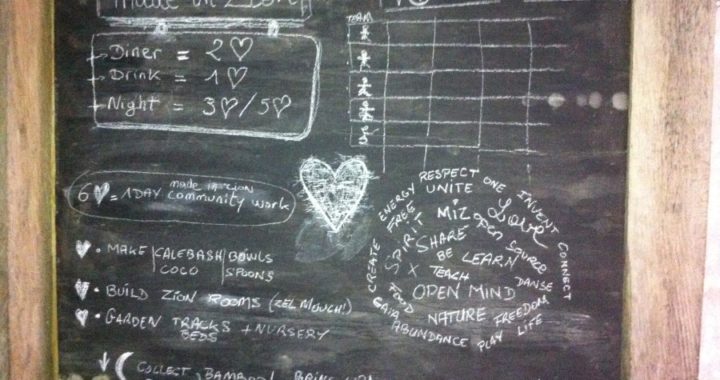 made in Zion
→ Diner = 2♡
→ Drink = 1♡
→ Night = 3♡/5♡
TEAM
6♥ = 1 DAY made in zion community work
♥ • MAKE KALEBASH BOWLS
COCO SPOONS
♥ • BUILD ZION ROOMS (ZEL MOUCH!)
♥ • GARDEN TRACKS + NURSERY
BEDS
↓ COLLECT BAMBOO!
RESPECT
ENERGY UNITE ONE INVENT
FREE MiZ Love CONNECT
SPIRIT SHARE open SOURCE
CREATE BE LEARN DANSE
X TEACH
FOOD OPEN MIND
GAIA NATURE FREEDOM
ABUNDANCE PLAY LIFE